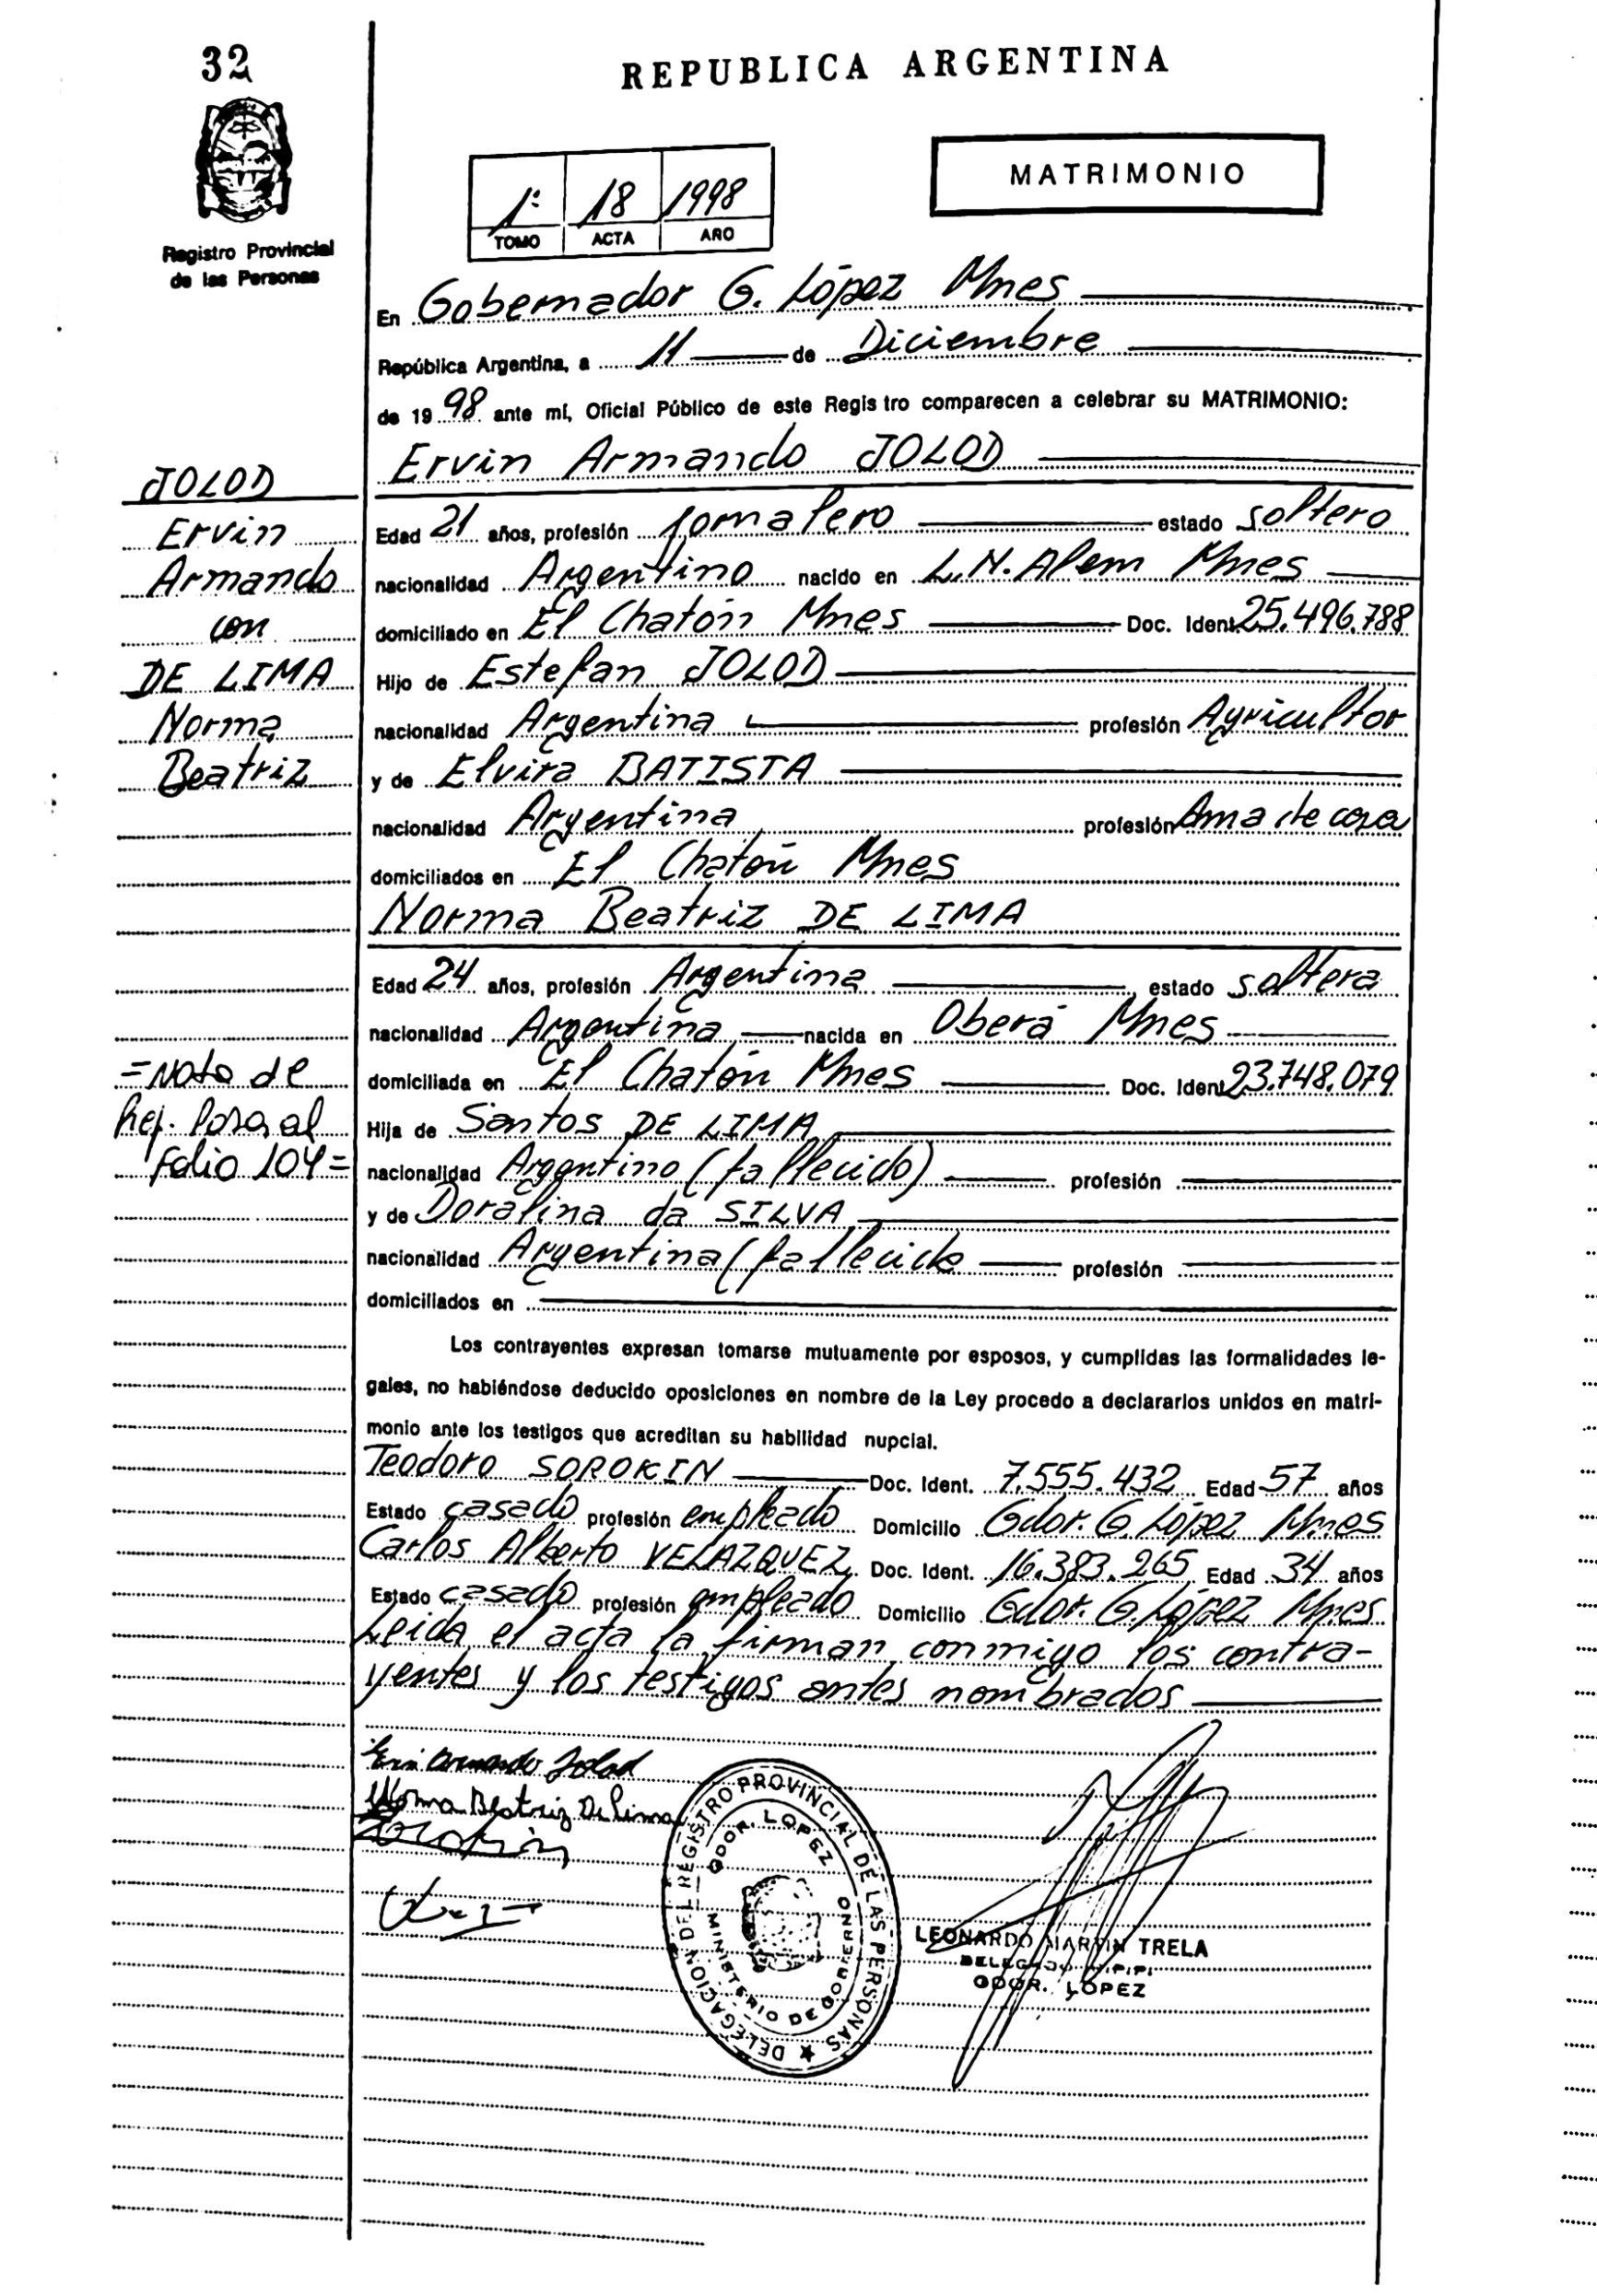 32
REPUBLICA ARGENTINA
MATRIMONIO
1º 18 1998
TOMO ACTA AÑO
Registro Provincial
de las Personas
En Gobernador G. López Mnes
República Argentina, a 11 de Diciembre
de 1998 ante mí, Oficial Público de este Regis tro comparecen a celebrar su MATRIMONIO:
Ervin Armando JOLOD
JOLOD
Ervin
Armando
con
DE LIMA
Norma
Beatriz
Edad 21 años, profesión Jornalero estado soltero
nacionalidad Argentino nacido en L.N. Alem Mnes
domiciliado en El Chatón Mnes Doc. Ident. 25.496.788
Hijo de Estefan JOLOD
nacionalidad Argentina profesión Agricultor
y de Elvira BATISTA
nacionalidad Argentina profesión Ama de casa
domiciliados en El Chatón Mnes
Norma Beatriz DE LIMA
Edad 24 años, profesión Argentina estado soltera
nacionalidad Argentina nacida en Oberá Mnes
domiciliada en El Chatón Mnes Doc. Ident. 23.748.079
=Nota de
folio 104=
Hija de Santos DE LIMA
nacionalidad Argentino (fallecido) profesión
y de Doralina da SILVA
nacionalidad Argentina (fallecida profesión
domiciliados en
Los contrayentes expresan tomarse mutuamente por esposos, y cumplidas las formalidades le-
gales, no habiéndose deducido oposiciones en nombre de la Ley procedo a declararlos unidos en matri-
monio ante los testigos que acreditan su habilidad nupcial.
Teodoro SOROKIN Doc. Ident. 7.555.432 Edad 57 años
Estado casado profesión empleado Domicilio Gdor. G. López Mnes
Carlos Alberto VELAZQUEZ Doc. Ident. 16.383.265 Edad 34 años
Estado casado profesión empleado Domicilio Gdor. G. López Mnes
Leida el acta la firman conmigo los contra-
yentes y los testigos antes nombrados
Ervin Armando Jolod
Norma Beatriz De Lima
Sorokin
DELEGACION DEL REGISTRO PROVINCIAL DE LAS PERSONAS
GDOR. LOPEZ
MINISTERIO DE GOBIERNO
LEONARDO MARTIN TRELA
DELEGADO R.P.P.
GDOR. LOPEZ